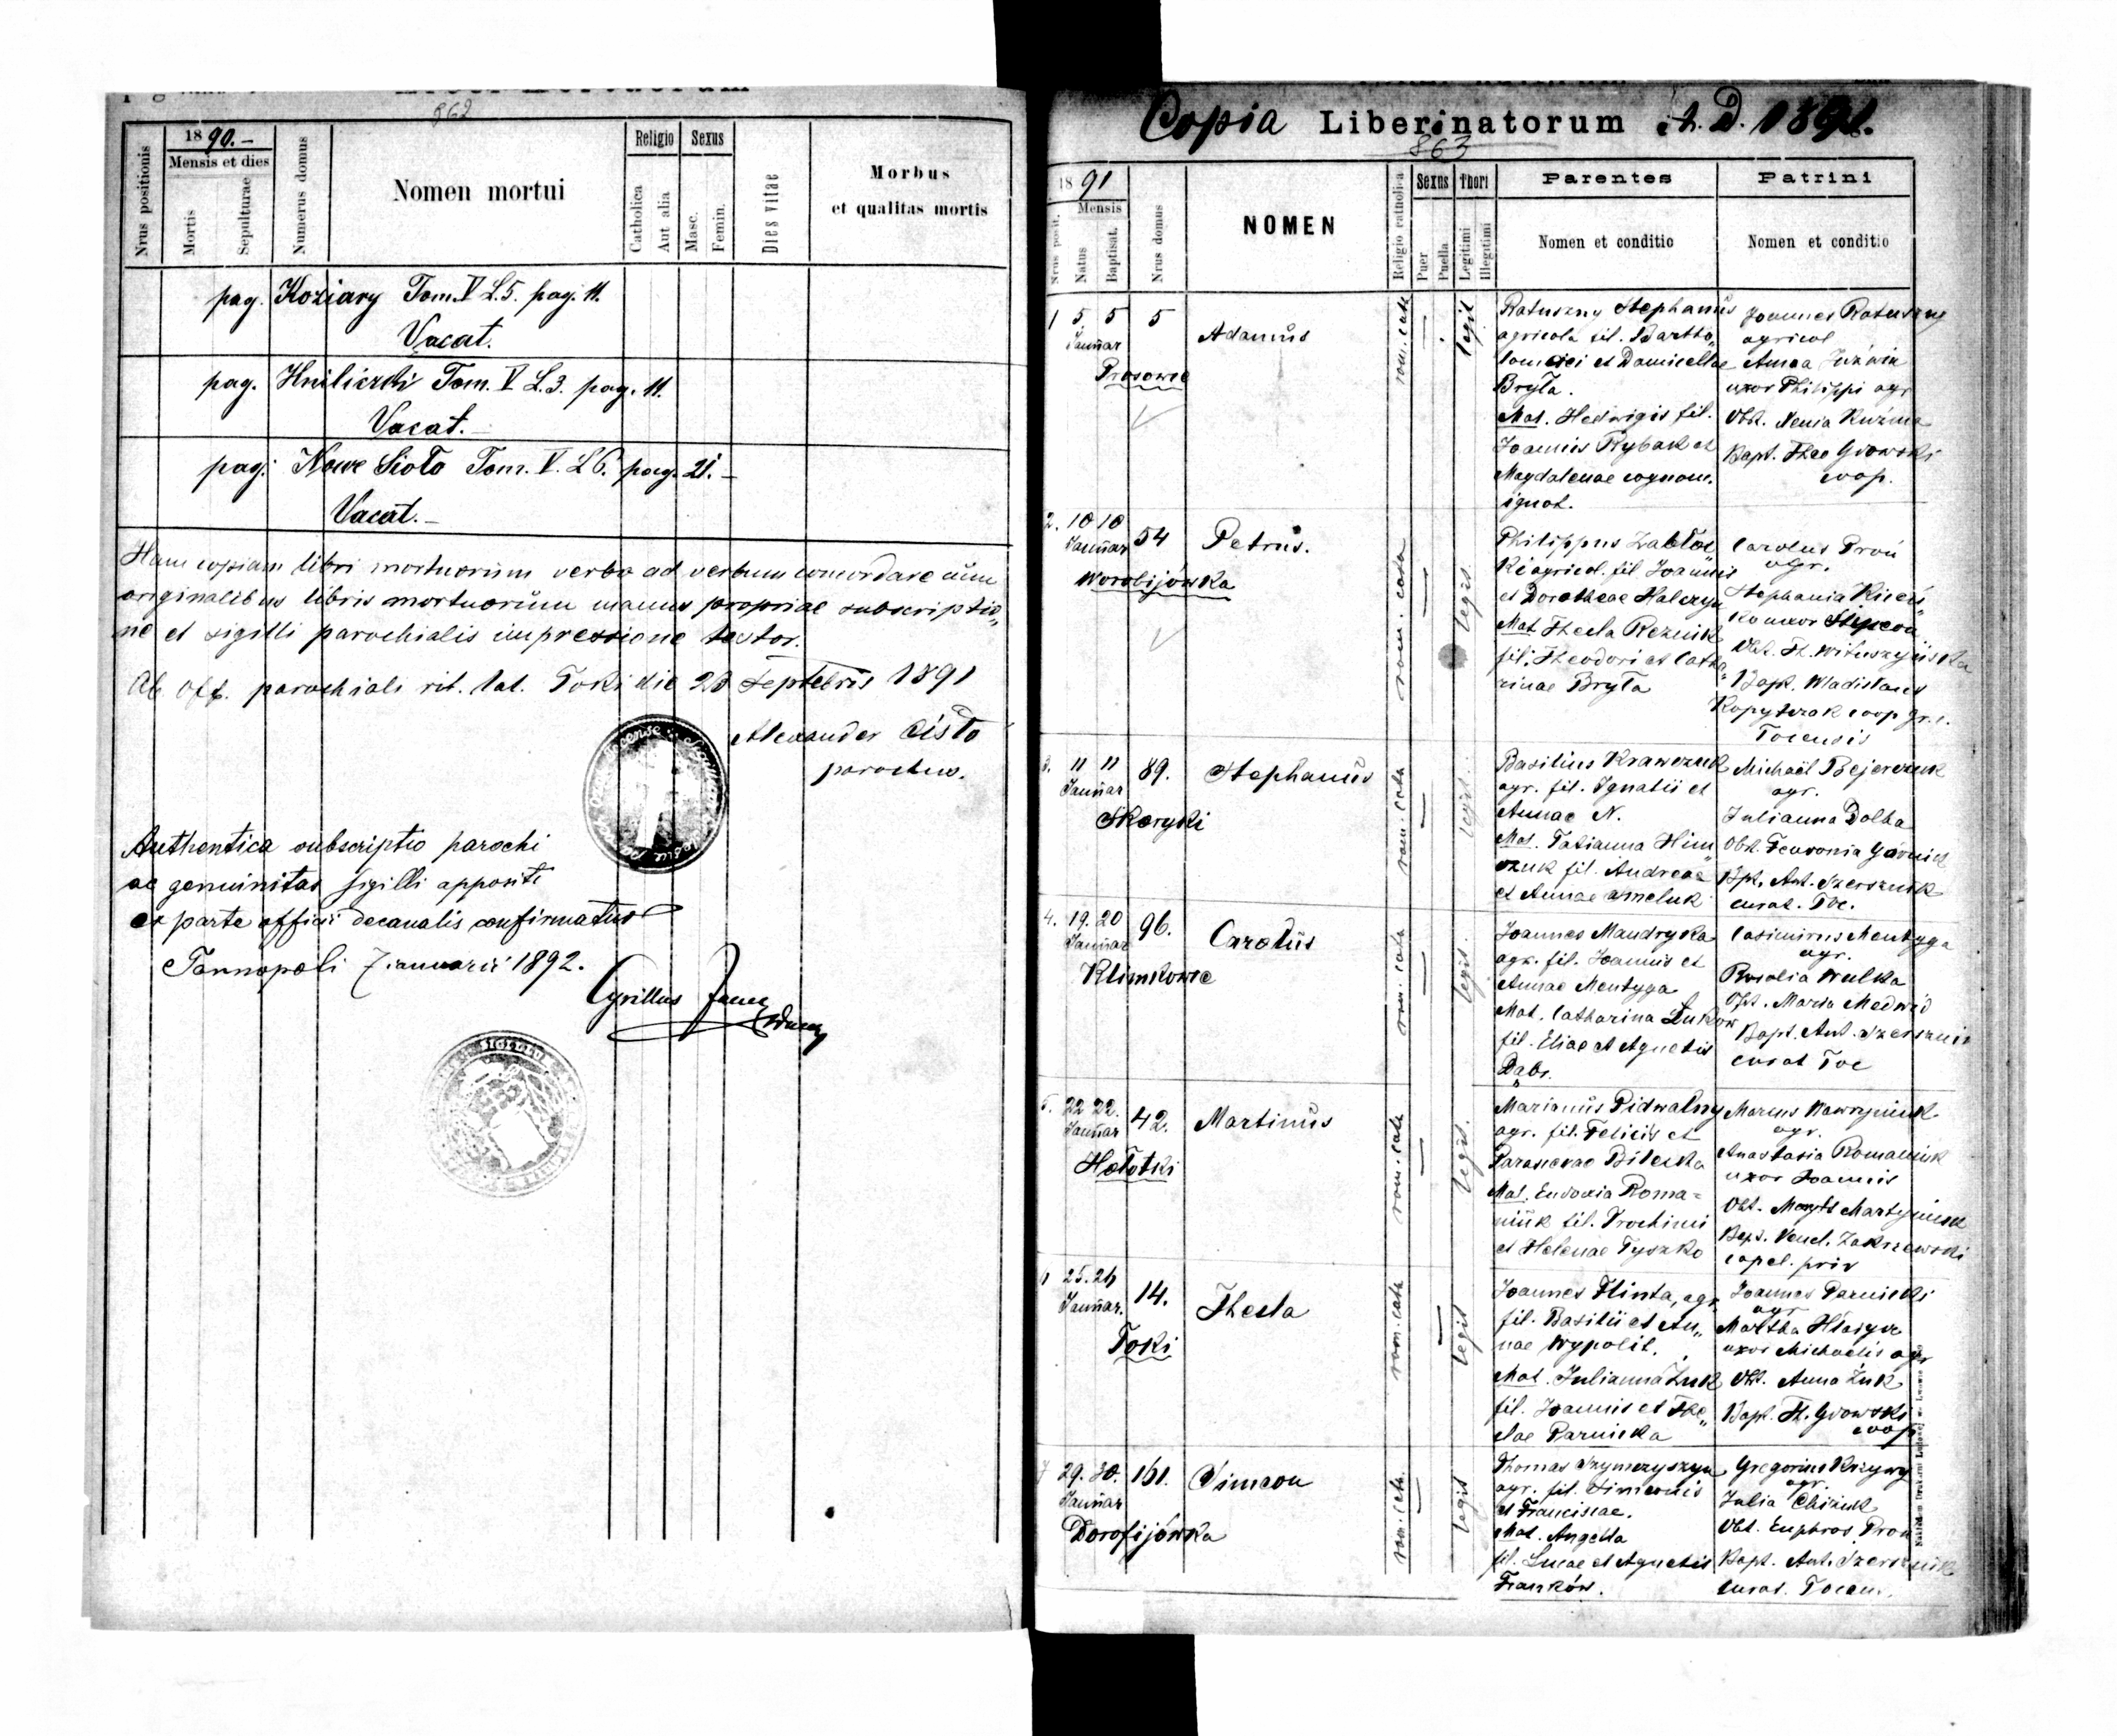 862
Nrus positionis
1890.-
Mensis et dies
Mortis
Sepulturae
Numerus domus
Nomen mortui
Religio
Catholica
Aut alia
Sexus
Masc.
Femin.
Dies vitae
Morbus
et qualitas mortis
pag. Koziary Tom. V L.5. pag. 11.
Vacat.
pag. Hniliczki Tom. V L.3. pag. 11.
Vacat.-
pag. Nowe Sioło Tom. V. L 6. pag. 21.-
Vacat.-
Hanc copiam libri mortuorum verbo ad verbum concordare cum
originalibus libris mortuorum manus propriae subscriptio„
ne et sigilli parochialis impressione testor.
Ab off. parochiali rit. lat. Toki die 28 Septebris 1891
Alexander Cisło
parochus.
Authentica subscriptio parochi
ac genuinitas sigilli appositi
ex parte officii decanalis confirmatur
Tarnopoli 7 ianuarii 1892.
Cyrillus
SIGILLUM
Copia Liber natorum A. D. 1891.
863
Nrus posit.
1891
Mensis
Natus
Baptisat.
Nrus domus
NOMEN
Religio catholica
Sexus
Puer
Puella
Thori
Legitimi
Illegitimi
Parentes
Nomen et conditio
Patrini
Nomen et conditio
1 5 5 5
Januar
Prosowce
Adamus
rom. cath
legit
Ratuszny Stephanus
agricola fil. Bartho„
lomaei et Domicellae
Bryła.
Mat. Hedwigis fil.
Joannis Rybak et
Magdalenae cognom.
ignot.
Joannes Ratuszny
agricol
Anna Juźwin
uxor Philippi agr
Obst. Xenia Kuźma
Bapt. Theo Gvowski
coop.
2. 10 10 54
Januar
Worobijówka
Petrus.
rom. cath
legit.
Philippus Zabłoc
ki agricol. fil Joannis
et Dorotheae Halczyn
Mat Thecla Reznik
fil. Theodori et Catha„
rinae Bryła
Carolus Proń
agr.
Stephania Kicen„
ko uxor Simeon
Obst. Th. Wituszyńska
Bapt. Wladislaus
Kopytczak coop gr. c.
Tocensis
3. 11 11 89.
Januar
Skoryki
Stephanus
rom. cath
legit.
Basilius Krawczuk
agr. fil. Ignatii et
Annae N.
Mat. Tatianna Him„
czuk fil. Andreae
et Annae Ameluk
Michaël Bejerczuk
agr.
Julianna Dolba
Obst. Fevronia Górnick
Bpt. Ant. Szersznik
curat. Toc.
4. 19. 20 96.
Januar
Klimkowce
Carolus
rom. cath
legit.
Joannes Mandryka
agr. fil. Joannis et
Annae Mentyga
Mat. Catharina Luków
fil. Eliae et Agnetis
Dąbr.
Casimirus Mentyga
agr.
Rosalia Wulka
Obst. Maria Medwid
Bapt. Ant. Szersznik
curat Toc
5. 22 22. 42.
Januar
Hołotki
Martinus
rom. cath
legit.
Marianus Pidwalny
agr. fil. Felicis et
Parascevae Bileska
Mat. Eudoxia Roma=
niuk fil. Prochimi
et Helenae Tyszko
Marcus Wawryniuk
agr.
Anastasia Romaniuk
uxor Joannis
Obst. Martyniuk
Bapt. Vencl. Zakrzewski
capel. priv
25. 26 14.
Januar.
Toki
Thecla
rom. cath
legit
Joannes Hlinta, agr.
fil. Basilii et An„
nae Wypolit.
Mat. Julianna Żuk
fil. Joannis et The„
clae Parnicka
Joannes Parnicki
agr
Martha
uxor Michaelis agr
Obst. Anna Żuk
Bapt. Th. Gvowski
coop
7 29. 30. 161.
Januar
Dorofijówka
Simeon
rom. cth.
legit
Thomas Szymczyszyn
agr. fil. Simeonis
et Franciscae.
Mat. Angella
fil. Lucae et Agnetis
Franków.
Gregorius Krzywy
agr.
Julia Chiżuk
Obst. Euphros. Proń
Bapt. Ant. Szersznik
curat. Tocen.